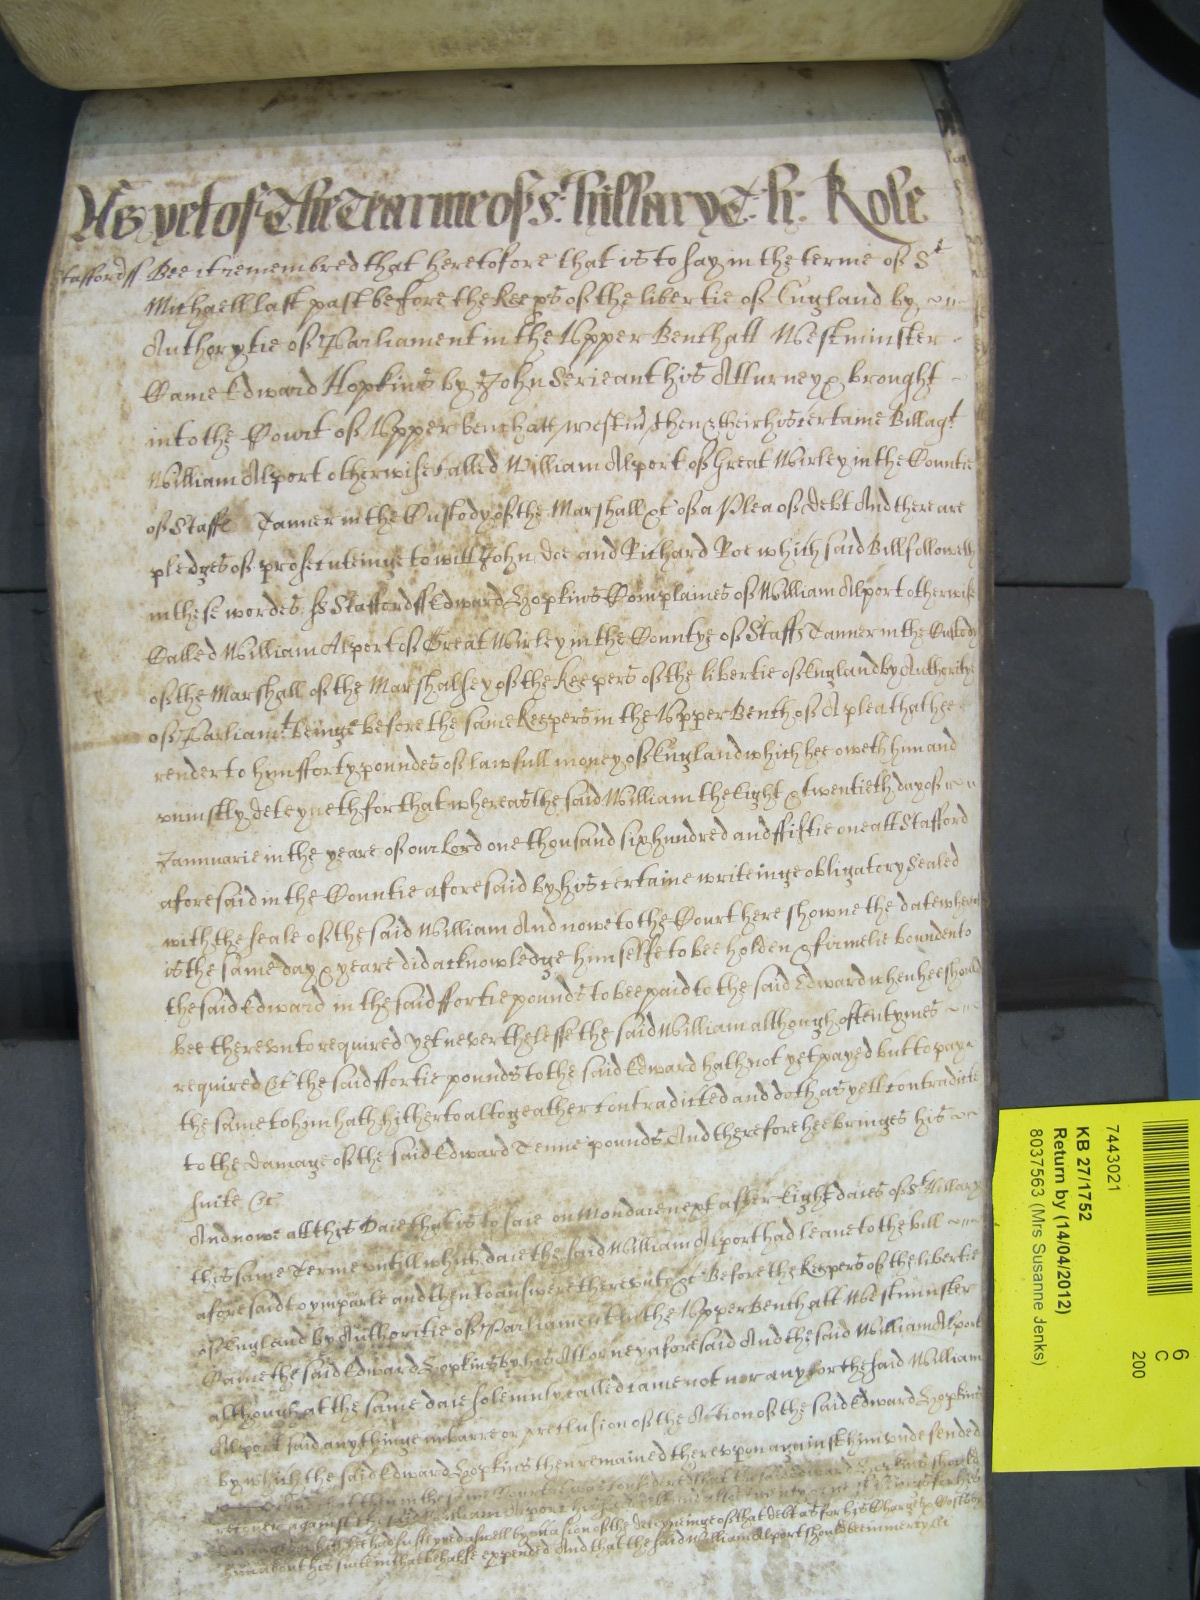 As yet of the Tearme of S: hillary &
Role
taffordss Bee it remembred that heretofore that is to say in the terme of St
Michaell last past before the Keeps of the libertie of England by
Authorytie of Parliament in the Upper Bench att Westminster
Came Edward Hopkins by John Serieant his Atturney & brought
into the Court of Upper bench att westm then & their his certaine Bill agt
William Alport otherwise Called William Alport of Great Wirley in the Countie
of Staff Tanner in the Custody of the Marshall &c of a Plea of debt And there are
pledges of prosecuteinge to witt John Doe and Richard Roe which said Bill followeth
in these wordes ss Staffordss Edward Hopkins Complaines of William Alport otherwise
Called William Alport of Great Wirley in the Countye of Staff Tanner in the Custody
of the Marshall of the Marshalsey of the Keepers of the libertie of England by Authoritye
of Parliamt beinge before the same Keepers in the Upper Bench of A plea that hee
render to hym fforty poundes of lawfull money of England which hee oweth him and
uniustly deteyneth for that whereas the said William the Eight & twentieth day of
Jannuarie in the yeare of our Lord one thousand six hundred and ffiftie one att Stafford
aforesaid in the Countie aforesaid by his certaine writeinge obligatory Sealed
with the seale of the said William And nowe to the Court here showne the date whereof
is the same day & yeare did acknowledge himselfe to bee holden & firmelie bounden to
the said Edward in the said ffortie pounds to bee payd to the said Edward when hee should
bee thereunto required yet neverthelesse the said William although oftentymes
required &c the said ffortie pounds to the said Edward hath not yet payed but to pay
the same to him hath hitherto altogeather contradicted and doth as yett contradicte
to the damage of the said Edward Tenne pounds And therefore hee bringes his
suite &c
And nowe att this Daie that is to saie on Mondaie next after Eight daies of St Hillary
this same Terme untill which daie the said William Alport had leane to the bill
aforesaid to ymparle and then to answere thereunto &c Before the Keepers of the libertie
of England by Authoritie of Parliament In the Upper Bench att Westminster
Came the said Edward Hopkins by his Attorney aforesaid And the said William Alport
although at the same daie solemnly called came not nor any for the said William
Alport said anythinge in barre or preclusion of the Action of the said Edward Hopkins
by which the said Edward Hopkins then remained thereupon against him undefended
that then in the same Court it was considered that the said Edward Hopkins should
recover against the said William Alport his said debt
which hee had susteyned aswell by occasion of the deteyneinge of that debt as for his Charges & Costs by
him about his suite in that behalfe expended And that the said William Alport should bee in mercy &c
7443021
KB 27/1752
Return by (14/04/2012)
8037563 (Mrs Susanne Jenks)
6
C
200